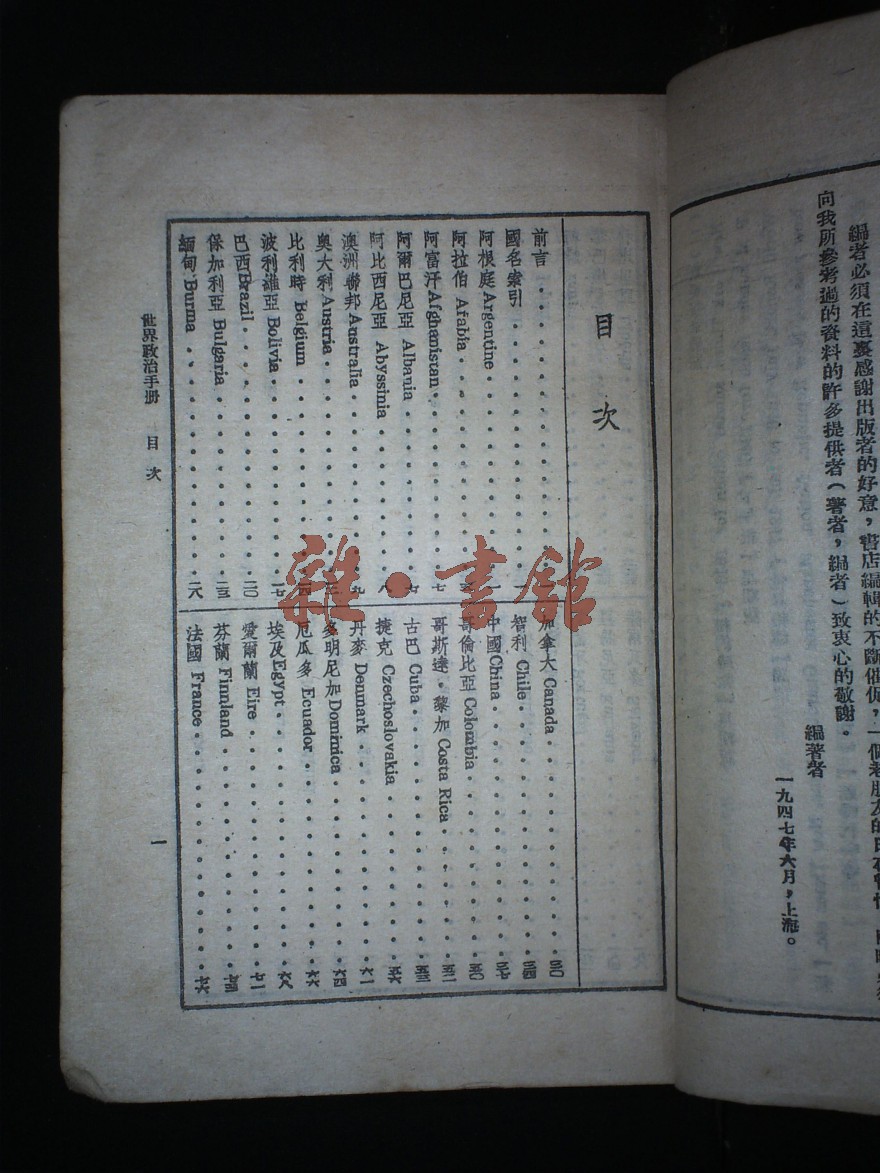 編者必須在這裏感謝出版者的好意，書店編輯的不斷催促，一個老朋友的
向我所參考過的資料的許多提供者（著者，編者）致衷心的敬謝。
編著者
一九四七年六月，上海。
目次
前言
國名索引
阿根庭 Argentine
阿拉伯 Afabia
阿富汗 Afghanistan 七
阿爾巴尼亞 Albania 七
阿比西尼亞 Abyssinia 八
澳洲聯邦 Australia 九
奧大利 Austria
比利時 Belgium 一四
波利維亞 Bolivia 一七
巴西 Brazil 二〇
保加利亞 Bulgaria 二三
緬甸 Burma 二八
加拿大 Canada 三〇
智利 Chile 三四
中國 China 三七
哥倫比亞 Colombia 五〇
哥斯達·黎加 Costa Rica 五二
古巴 Cuba 五三
捷克 Czechoslovakia 五六
丹麥 Denmark 六一
多明尼加 Dominica 六四
厄瓜多 Ecuador 六六
埃及 Egypt 六八
愛爾蘭 Eire 七一
芬蘭 Finnland 七三
法國 France 七六
世界政治手册 目次
一
雜·書館